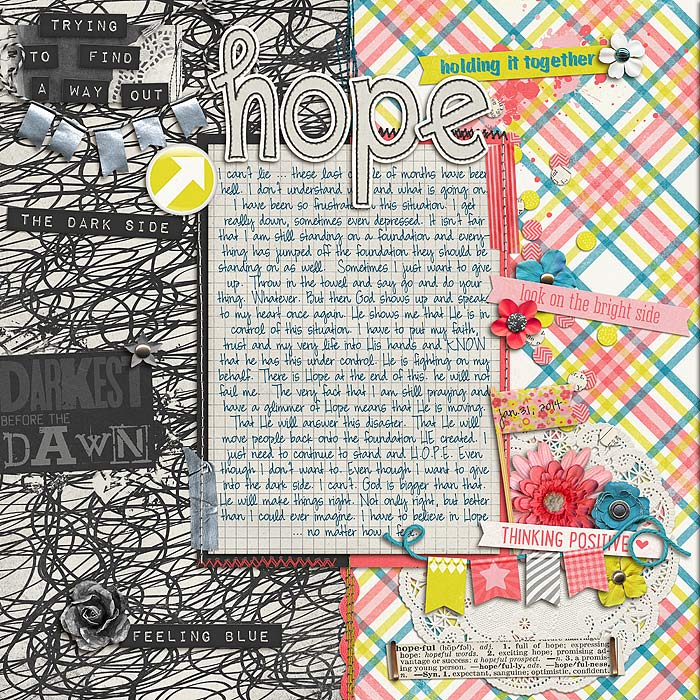 TRYING
TO FIND
A WAY OUT
hope
holding it together
THE DARK SIDE
I can't lie ... these last of months have been
hell. I don't understand and what is going on.
I have been so frustrated in this situation. I get
really down, sometimes even depressed. It isn't fair
that I am still standing on a foundation and every-
thing has jumped off the foundation they should be
standing on as well. Sometimes I just want to give
up. Throw in the towel and say go and do your
thing. Whatever. But then God shows up and speaks
to my heart once again. He shows me that He is in
control of this situation. I have to put my faith,
trust and my very life into His hands and KNOW
that he has this under control. He is fighting on my
behalf. There is Hope at the end of this. he will not
fail me... The very fact that I am still praying and
have a glimmer of Hope means that He is moving.
That He will answer this disaster. That He will
move people back onto the foundation HE created. I
just need to continue to stand and H.O.P.E. Even
though I don't want to. Even though I want to give
into the dark side. I can't. God is bigger than that.
He will make things right. Not only right, but better
than I could ever imagine. I have to believe in Hope
... no matter how I feel.
look on the bright side
DARKEST
BEFORE THE
DAWN
Jan. 31, 2014
THINKING POSITIVE
FEELING BLUE
hope·ful (hōp'fəl), adj. 1. full of hope; expressing
hope: hopeful words. 2. exciting hope; promising ad-
vantage or success: a hopeful prospect. —n. 3. a promis-
ing young person. —hope'ful·ly, adv. —hope'ful·ness,
n. —Syn. 1. expectant, sanguine; optimistic, confident.